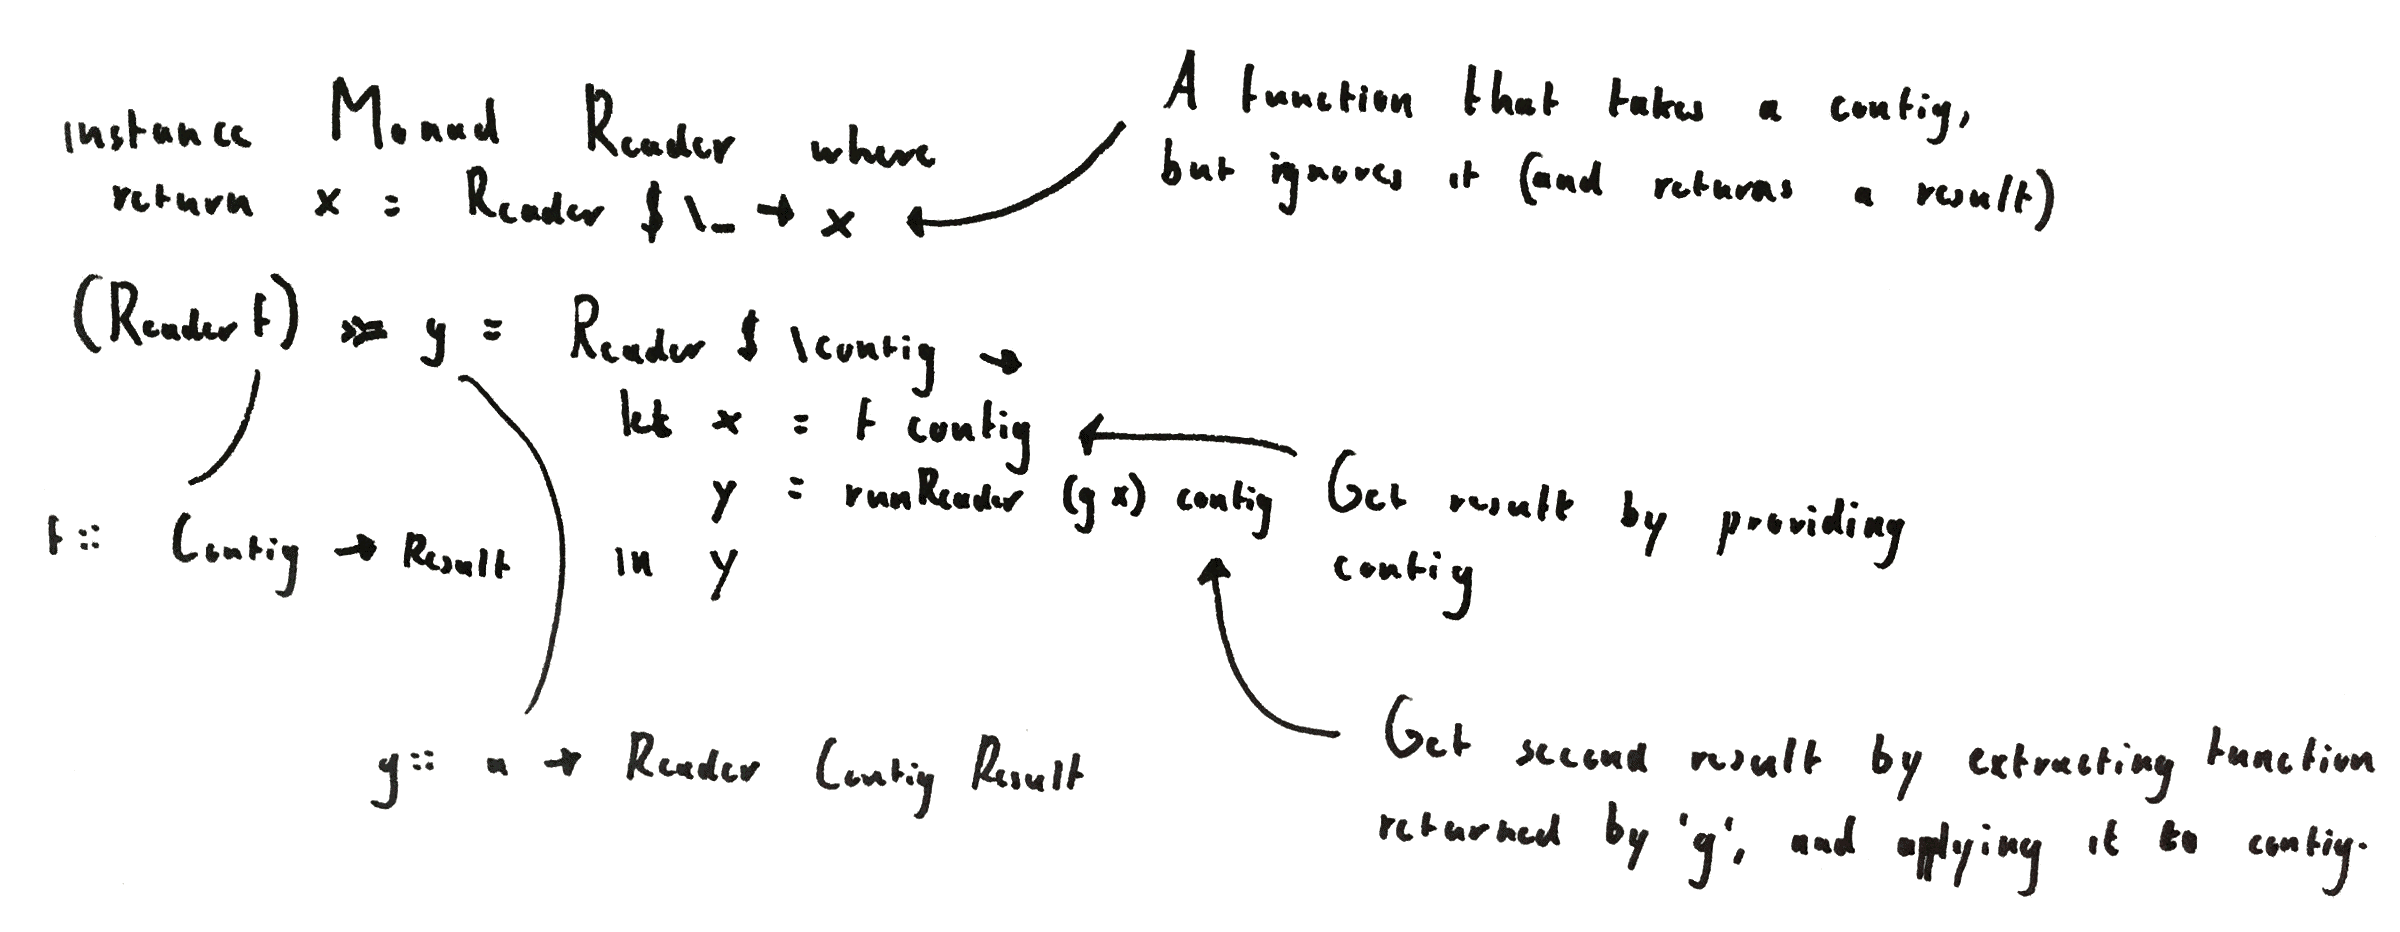 instance Monad Reader where
return x = Reader $ \_ → x
A function that takes a config,
but ignores it (and returns a result)
(Reader f) >>= g = Reader $ \config →
let x = f config
y = runReader (g x) config
in y
f :: Config → Result
Get result by providing
config
g :: a → Reader Config Result
Get second result by extracting function
returned by 'g', and applying it to config.